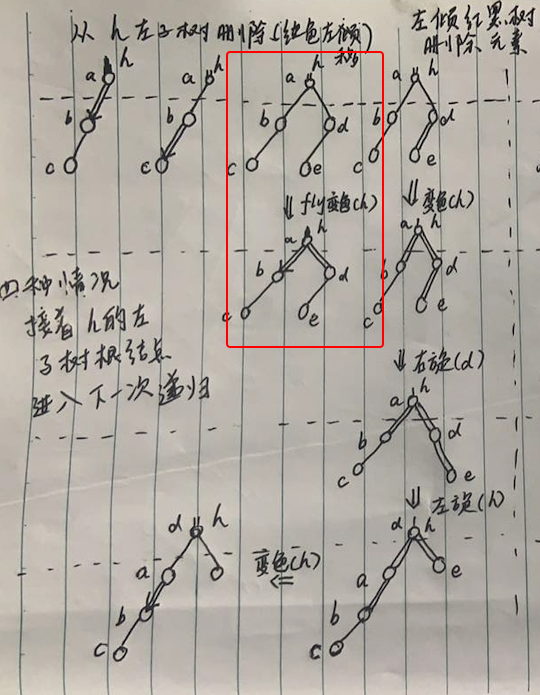 从 h 左子树删除(红色左倾
移)
左倾红黑树
删除元素
a h
b
c
a h
b
c
a h
b d
c e
a h
b d
c e
⇓ fly变色(h)
⇓ 变色(h)
a h
b d
c e
a h
b d
c e
四种情况
接着 h 的左
子树根结点
进入下一次递归
⇓ 右旋(d)
a h
b d
c e
⇓ 左旋(h)
d h
a
b
c
变色(h)
⇐
d h
a e
b
c